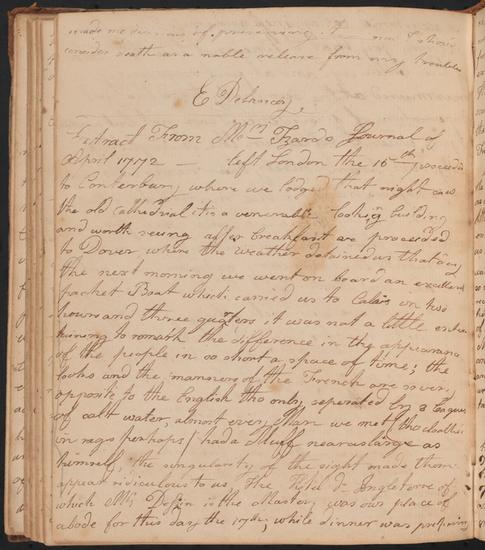 made me
consider death as a noble release from my troubles
E Delancey,
Extract From Mrs Izards Journal of
April 1772 — left London the 16th, proceeded
to Canterbury where we lodged that night saw
the old cathedral it is a venerable looking building
and worth seeing after breakfast we proceeded
to Dover, where the weather detained us that day
the next morning we went on board an excellent
packet Boat which carried us to Calais in two
hours and three quarters it was not a little enter
taining to remark the difference in the appearance
of the people in so short a space of time; the
looks and the manners of the French are very
opposite to the English tho only seperated by 8 Leagues
of salt water, almost every Man we met tho clothed
in rags perhaps / had a Muff near as large as
himself, the singularity of the sight made them
appear ridiculous to us. The Hotel d' Ingleterre of
which Mr Dessin is the Master, was our place of
abode for this day the 17th; while dinner was preparing